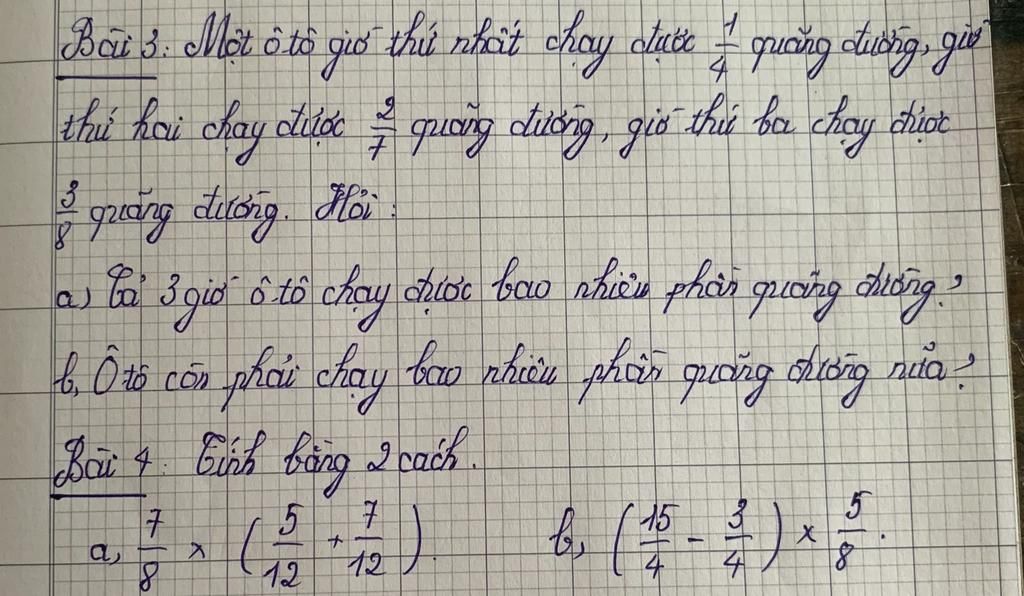 Bài 3: Một ô tô giờ thứ nhất chạy được 1/4 quãng đường, giờ
thứ hai chạy được 2/7 quãng đường, giờ thứ ba chạy được
3/8 quãng đường. Hỏi:
a) Cả 3 giờ ô tô chạy được bao nhiêu phần quãng đường?
b, Ô tô còn phải chạy bao nhiêu phần quãng đường nữa?
Bài 4: Tính bằng 2 cách.
a, 7/8 × (5/12 + 7/12). b, (15/4 - 3/4) × 5/8.